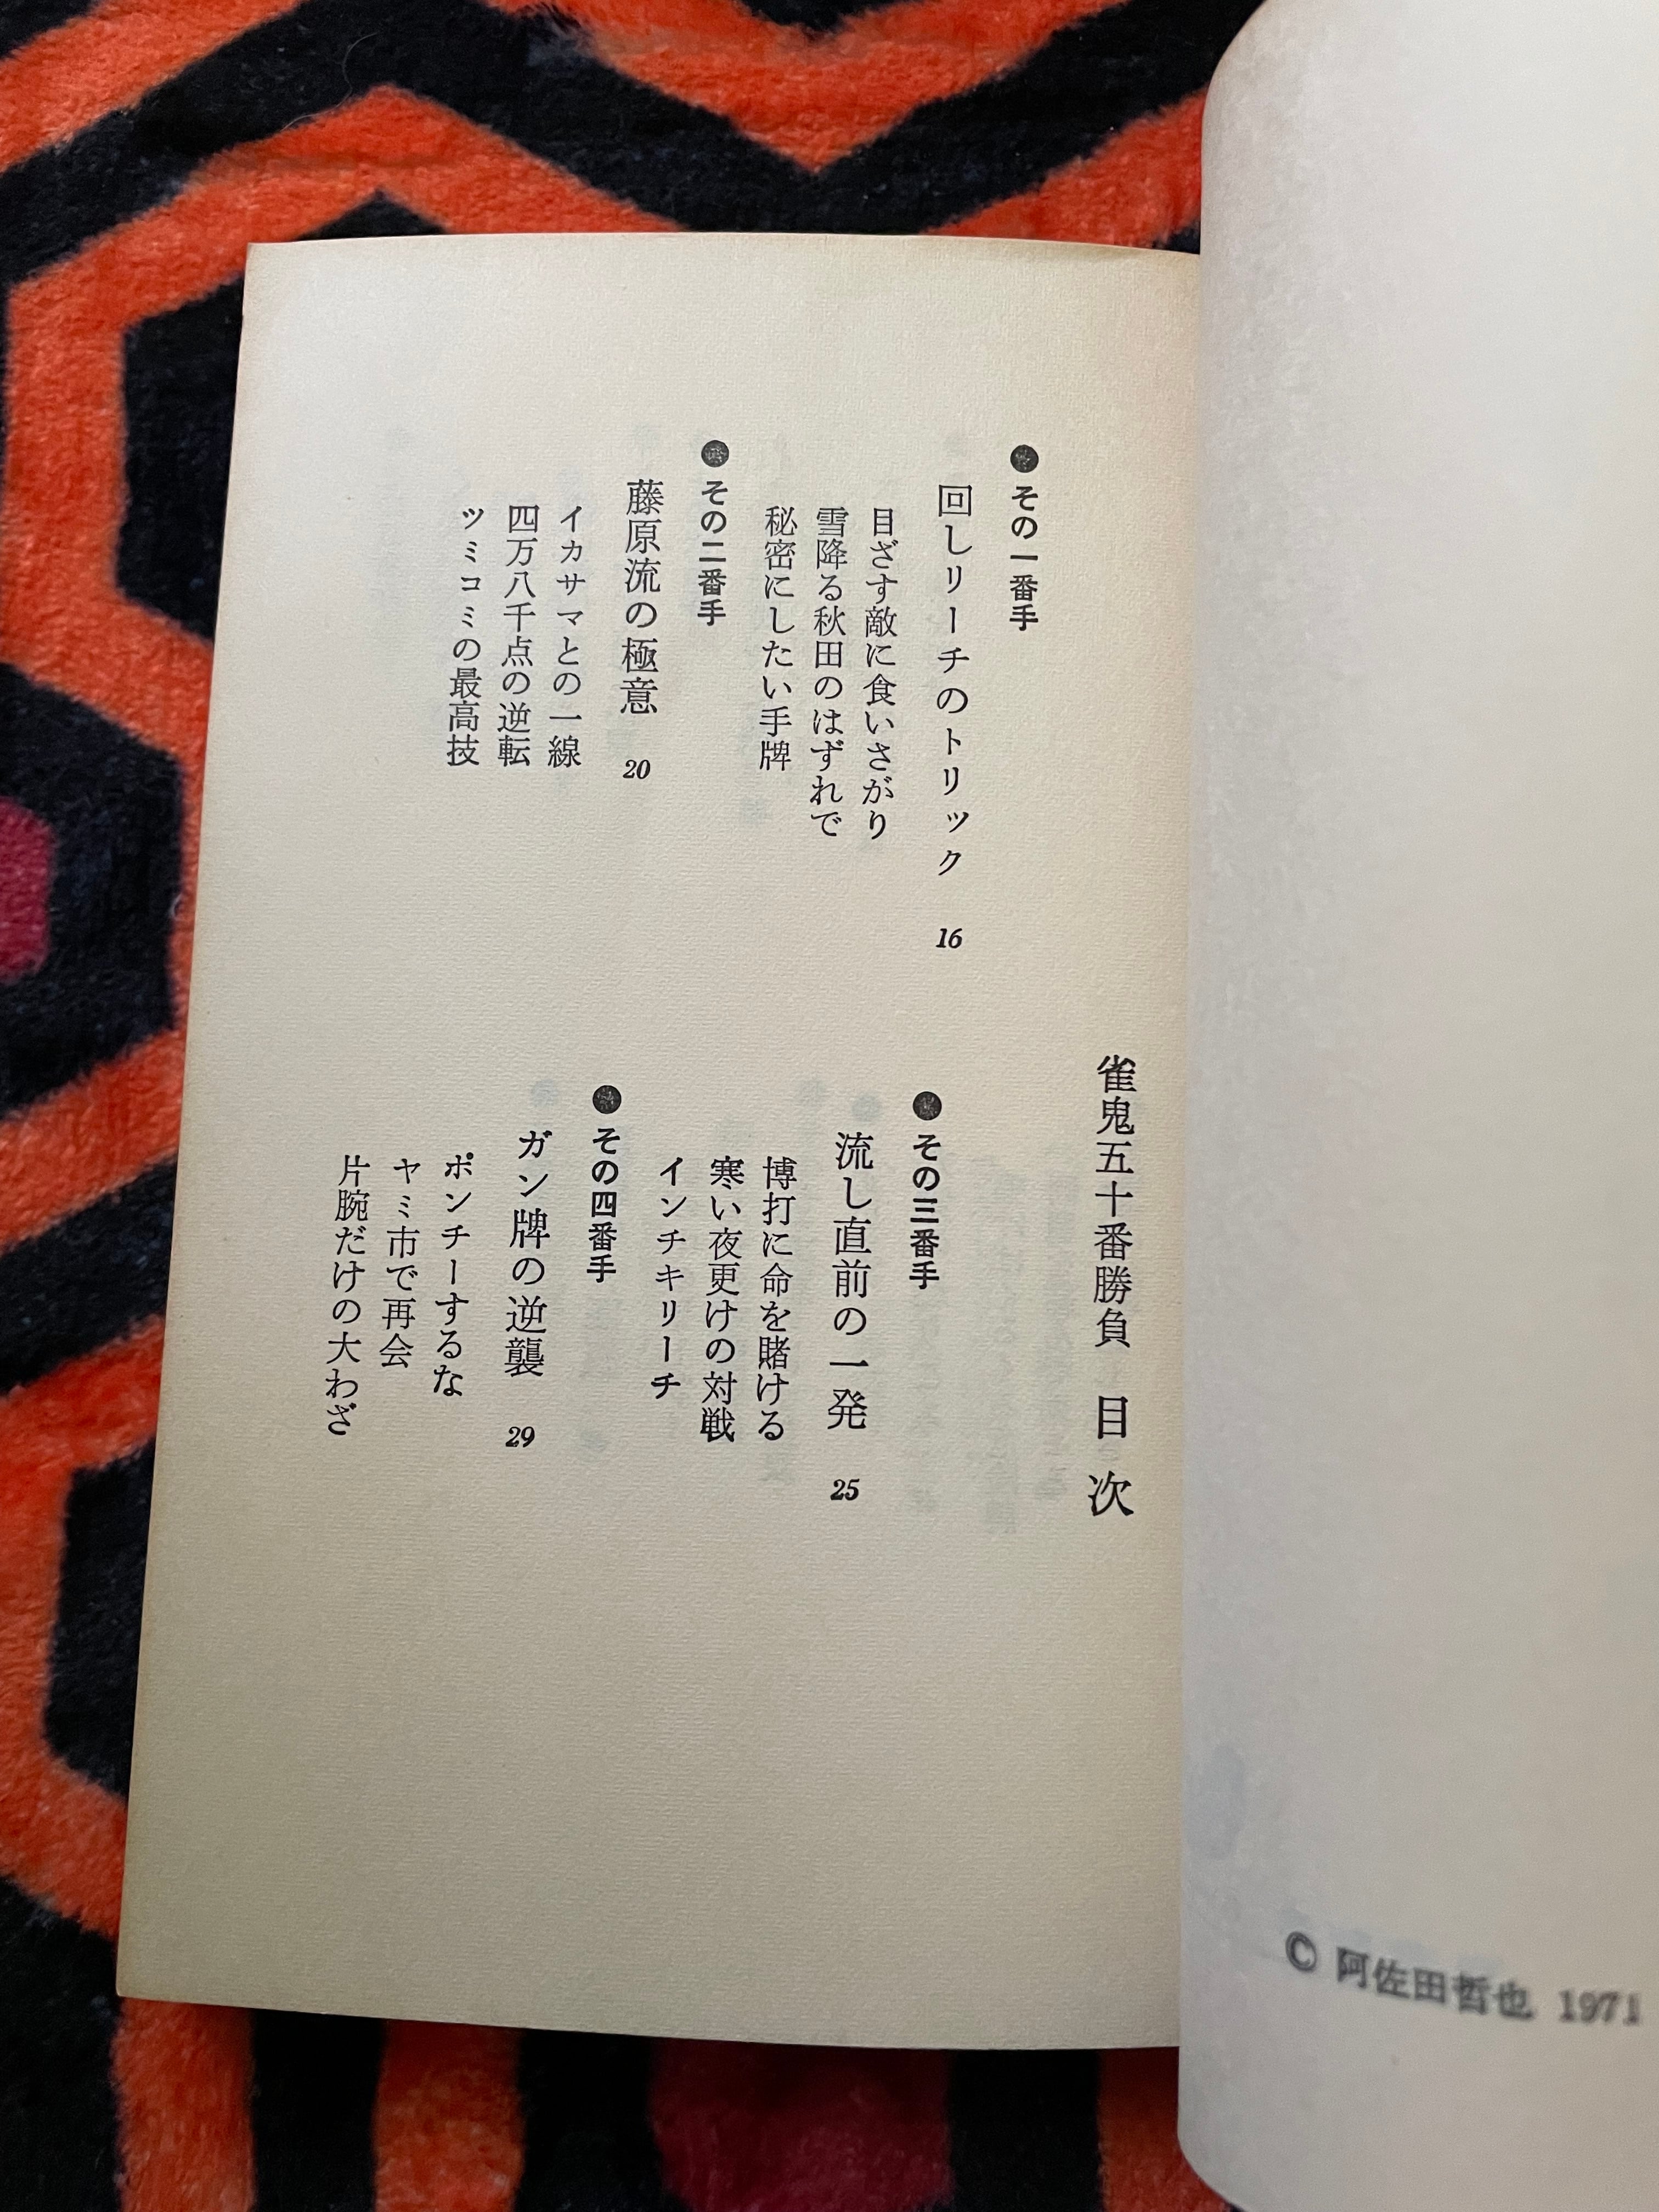 © 阿佐田哲也 1971
雀鬼五十番勝負 目次
●その一番手
回しリーチのトリック 16
目ざす敵に食いさがり
雪降る秋田のはずれで
秘密にしたい手牌
●その二番手
藤原流の極意 20
イカサマとの一線
四万八千点の逆転
ツミコミの最高技
●その三番手
流し直前の一発 25
博打に命を賭ける
寒い夜更けの対戦
インチキリーチ
●その四番手
ガン牌の逆襲 29
ポンチーするな
ヤミ市で再会
片腕だけの大わざ